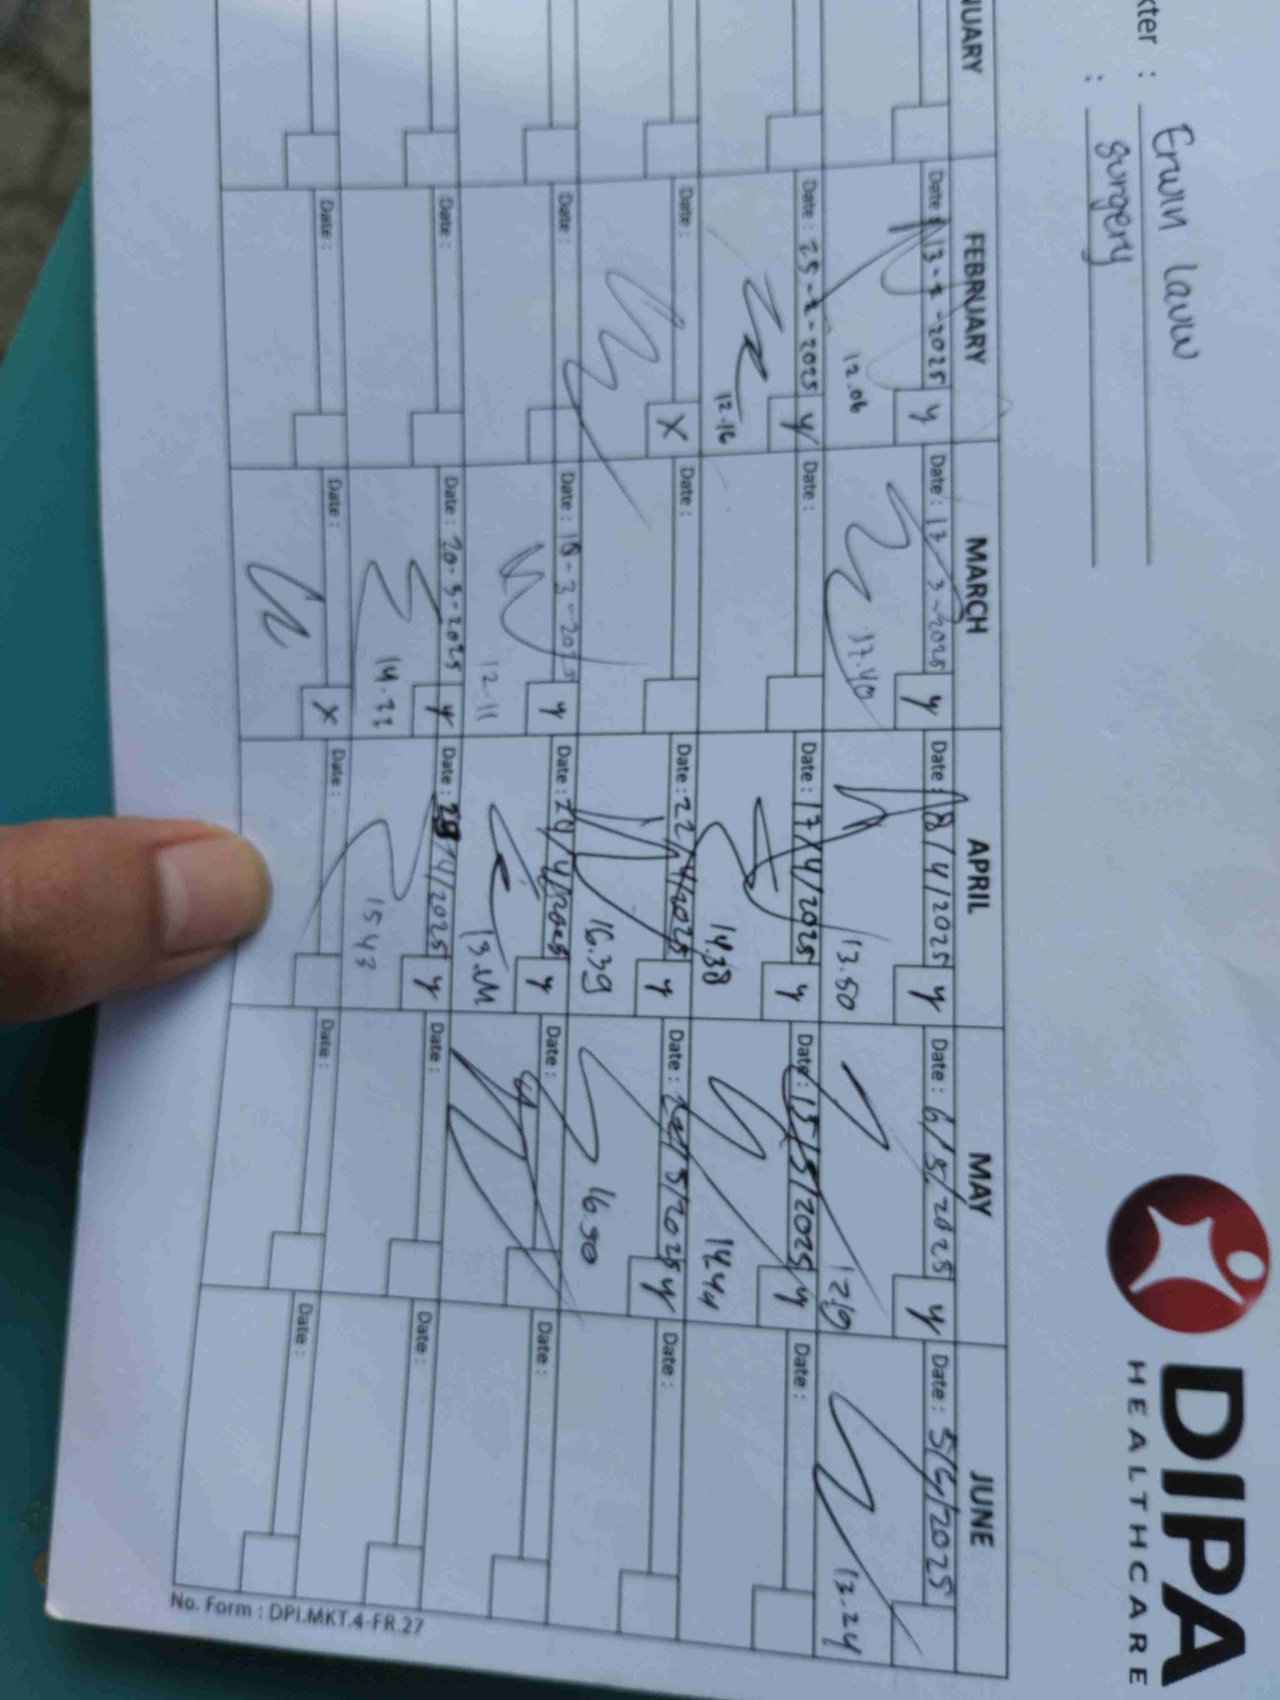 DIPA
HEALTHCARE
kter : Erwin
: surgery
NUARY FEBRUARY MARCH APRIL MAY JUNE
Date : 13-2-2025 y Date : 17 3-2025 y Date : 8/4/2025 y Date : 6/5/2025 y Date : 5/6/2025
12.06 17.40 13.50 12.19 13.24
Date : 25-2-2025 y Date : Date : 17/4/2025 y Date : 15/5/2025 y Date :
12.16 14.38 14.44
Date : X Date : Date : 22/4/2025 y Date : /5/2025 y Date :
16.39 16.50
Date : Date : 18-3-2025 y Date : 24/4/2025 y Date : Date :
12.11
Date : Date : 20-3-2025 y Date : 29/4/2025 y Date : Date :
14.22 15.43
Date : Date : X Date : Date : Date :
No. Form : DPI.MKT.4-FR.27